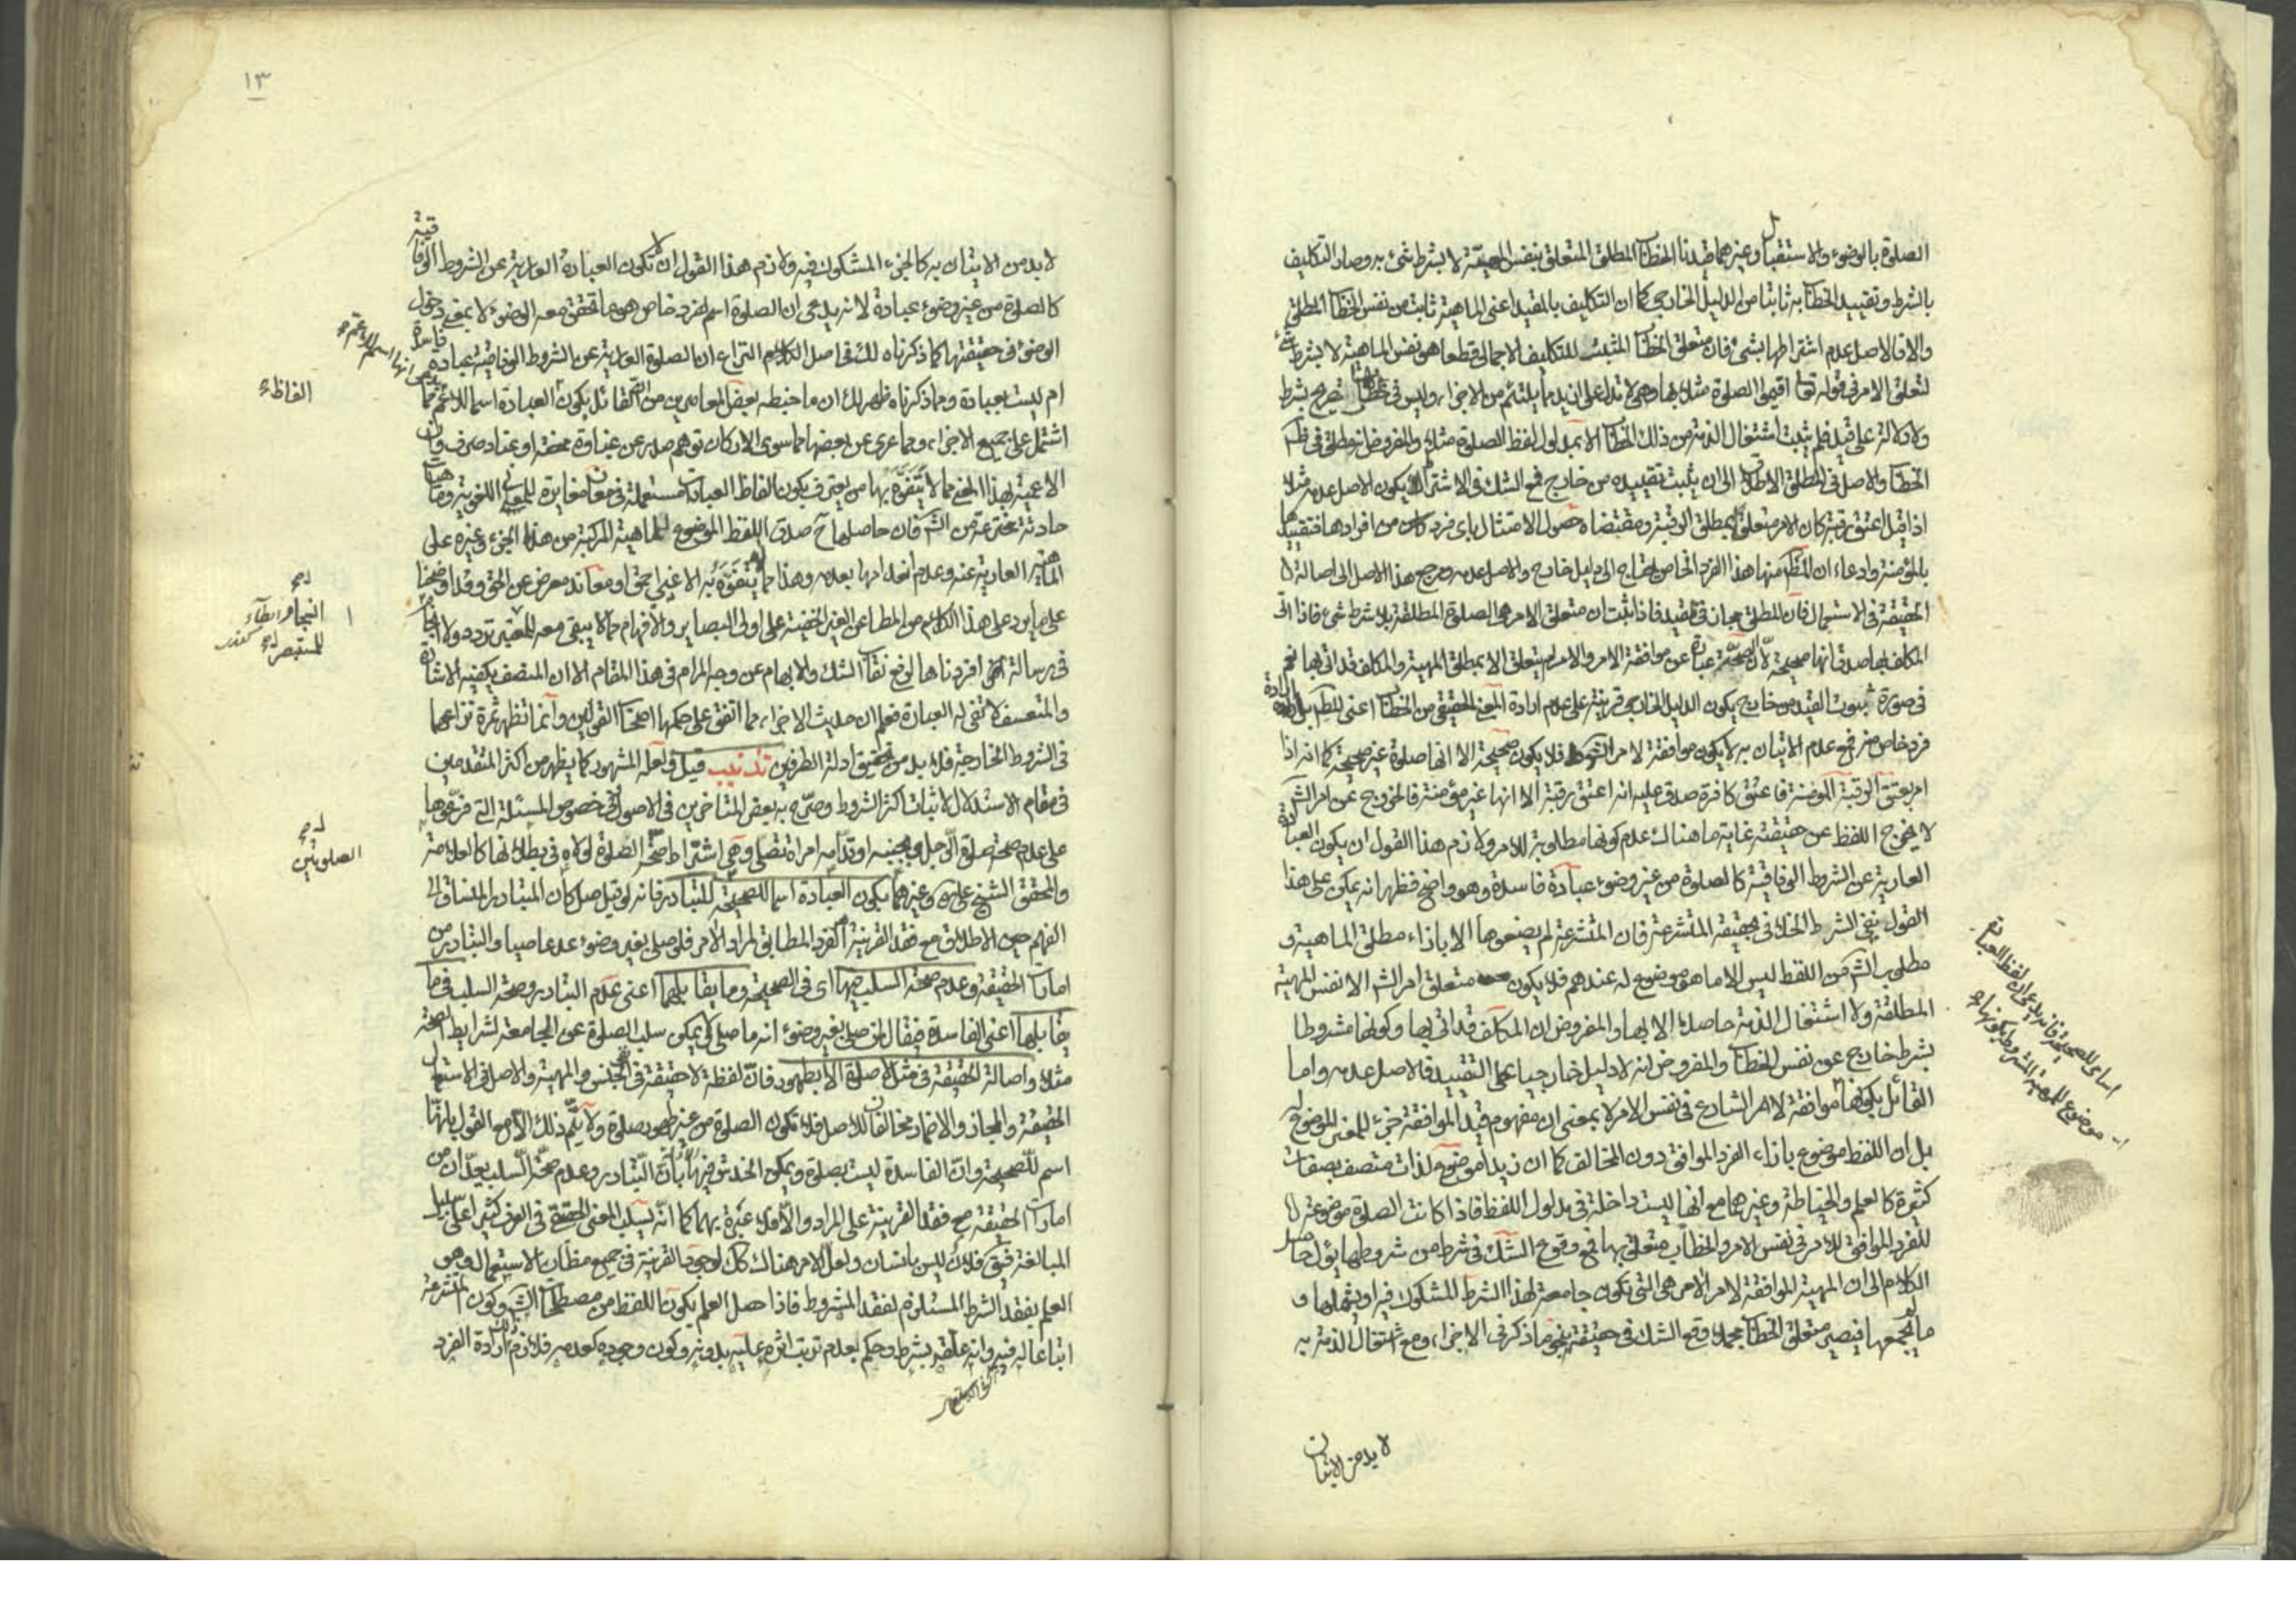 الصلوة بالوضوء والاستقبال وغيرهما قيدنا الخطاب المطلق المتعلق بنفس المهيّة لا بشرط شئ به وصار التكليف
بالشرط وتقييد الخطاب به ثابتا من الدليل الخارجي كما ان التكليف بالمقيد اعنى الماهية ثابت من نفس الخطاب المطلق
والا فالاصل عدم اشتراطها بشئ فان متعلق الخطاب المثبت للتكليف الاجمالى قطعا هو نفس الماهية لا بشرط شئ
لتعلق الامر فى قوله تعالى اقيموا الصلوة مثلا بها وهى لا تدل على ازيد مما يلتئم من الاجزاء وليس فى خطابها تصريح بشرط
ولا دلالة على قيد فلم يثبت اشتغال الذمة من ذلك الخطاب الا بمدلول لفظ الصلوة مثلا والمفروض انه مطلق فى ظاهر
الخطاب والاصل فى المطلق الاطلاق الى ان يثبت تقييده من خارج فمع الشك فى الاشتراط يكون الاصل عدمه مثلا
اذا قيل اعتق رقبة كان الامر متعلقا بمطلق الرقبة ومقتضاه حصول الامتثال باى فرد كان من افرادها فتقييدها
بالمؤمنة وادعاء ان المظ منها هذا الفرد الخاص يحتاج الى دليل خارج والاصل عدمه ومرجع هذا الاصل الى اصالة
الحقيقة فى الاستعمال فان المطلق مجاز فى المقيد فاذا ثبت ان متعلق الامر هى الصلوة المطلقة بلا شرط شئ فاذا اتى
المكلف بها صدق انها صحيحة لان الصحة عبارة عن موافقة الامر والامر لم يتعلق الا بمطلق المهية والمكلف قد اتى بها نعم
فى صورة ثبوت القيد من خارج يكون الدليل الخارجى قرينة على عدم ارادة المعنى الحقيقى من الخطاب اعنى المظ بل ارادة
فرد خاص منه فمع عدم الاتيان به لا يكون موافقة لامر الشرع فلا يكون صحيحة الا انها صلوة غير صحيحة كما انه اذا
امر بعتق الرقبة المؤمنة فاعتق كافرة صدق عليه انه اعتق رقبة الا انها غير مؤمنة فالخروج عن امر الش
لا يخرج اللفظ عن حقيقته غاية ما هناك عدم كونها مطلوبة للامر ولازم هذا القول ان يكون العبادة
العارية عن الشروط الوفاقية كالصلوة من غير وضوء عبادة فاسدة وهو واضح فظهر انه يمكن على هذا
القول نفى الشرط الخلافى بحقيقة المتشرعة فان المتشرعة لم يضعوها الا بازاء مطلق الماهية و
مطلوب الش من اللفظ ليس الا ما هو موضوع له عندهم فلا يكون متعلق امر الش الا نفس المهية
المطلقة ولا اشتغال الذمة حاصلا الا بها والمفروض ان المكلف قد اتى بها وكونها مشروطا
بشرط خارج عن نفس الخطاب والمفروض انه لا دليل خارجيا على التقييد فالاصل عدمه واما
القائل بكونها موافقة لامر الشارع فى نفس الامر لا بمعنى ان مفهوم قيد الموافقة جزء للمعنى الموضوع له
بل ان اللفظ موضوع بازاء الفرد الموافق دون المخالف كما ان زيدا موضوع لذات متصف بصفات
كثيرة كالعلم والخياطة وغيرهما مع انها ليست داخلة فى مدلول اللفظ فاذا كانت الصلوة موضوعة
للفرد الموافق للامر فى نفس الامر والخطاب متعلق بها فمع وقوع الشك فى شرط من شروطها يؤل حاصل
الكلام الى ان المهية الموافقة لامر الآمر هى التى تكون جامعة لهذا الشرط المشكوك فيه او يشملها و
ما يجمعها فيصير متعلق الخطاب مجملا وقع الشك فى حقيقته بنحو ما ذكر فى الاجزاء ومع اشتغال الذمة به
لا بد من الاتيان
اسامى للصحيحة فانه يدعى ان لفظ العبادة
موضوع للمهية المشروط بكونها
١٣
لا بد من الاتيان به كالجزء المشكوك فيه ولازم هذا القول ان لا تكون العبادة العارية عن الشروط الوفاقية
كالصلوة من غير وضوء عبادة لانه يدعى ان الصلوة اسم لفرد خاص هو ما تحقق معه الوضوء لا بمعنى دخول
الوضوء فى حقيقتها كما ذكرناه لك فى اصل الكلام النزاع ان الصلوة العارية عن الشروط الوفاقية عبادة فاسدة
ام ليست بعبادة ومما ذكرناه ظهر لك ان ما خبطه بعض المعاصرين من ان القائل بكون العبادة اسما للاعم مما
اشتمل على جميع الاجزاء ومما عرى عن بعضها مما سوى الاركان توهم صدر عن غباوة محضة او عناد صرف وان
الاعمية بهذا المعنى مما لا يتفوه بها من يعترف بكون الفاظ العبادات مستعملة فى معان مغايرة للمعنى اللغوية وماهيات
حادثة مخترعة من الش فان حاصلها ح صدق اللفظ الموضوع للماهية المركبة من هذا الجزء وغيره على
الماهية العارية عنه وعدم انعدامها بعدمه وهذا مما لا يتفوه به الا غبى احمق او معاند معرض عن الحق وقد اوضحنا
على ما يرد على هذا الكلام من المطاعن الغير الخفية على اولى البصاير والافهام مما لا يبقى معه للمعتبر تردد ولا
فى رسالة اخرى افردناها لرفع نقاب الشك والابهام عن وجه المرام فى هذا المقام الا ان المنصف يكفيه الاشارة
والمتعسف لا تفى له العبارة فعلم ان حديث الاجزاء مما اتفق على حكمها اصحاب القولين وانما تظهر ثمرة نزاعهما
فى الشروط الخارجية فلا بد من تحقيق ادلة الطرفين تذنيب قيل ولعله المشهور كما يظهر من اكثر المتقدمين
فى مقام الاستدلال لاثبات اكثر الشروط وصرّح به بعض المتاخرين فى الاصول فى خصوص المسئلة التى فرّعوها
على عدم صحة صلوة الرجل وبجنبه او قدامه امراة تصلى وهى اشتراط صحة الصلوة لولاه فى بطلانها كالعلامة
والمحقق الشيخ على ره وغيرهما بكون العبادة اسما للصحيحة للتبادر فانه لو قيل صل كان المتبادر المنساق الى
الفهم حين الاطلاق مع فقد القرينة الفرد المطابق لمراد الامر فلو صلى بغير وضوء عد عاصيا والتبادر من
امارات الحقيقة وعدم صحة السلب فيها اى فى الصحيحة وما يقابلهما اعنى عدم التبادر وصحة السلب فى ما
يقابلها اعنى الفاسدة فيقال لمن صلى بغير وضوء انه ما صلى ولا يمكن سلب الصلوة عن الجامعة لشرايط الصحة
مثلا واصالة الحقيقة فى مثل لا صلوة الا بطهور فان لفظة لا حقيقة فى نفى الجنس والمهية والاصل فى الاستعمال
الحقيقة والمجاز والاضمار مخالفان للاصل فلا تكون الصلوة من غير طهور صلوة ولا يتم ذلك الا مع القول بانها
اسم للصحيحة وان الفاسدة ليست بصلوة ويمكن الخدش فيها بان التبادر وعدم صحة السلب يعدان من
امارات الحقيقة مع فقد القرينة على المراد والا فلا عبرة بهما كما انه يسلب المعنى الحقيقى فى العرف كثيرا على سبيل
المبالغة فيق فلان ليس بانسان ولعل الامر هناك كك لوجود القرينة فى جميع مظان الاستعمال وهو
العلم بفقد الشرط المستلزم لفقد المشروط فاذا حصل العلم بكون اللفظ من مصطلحات الش وكون المتشرعة
اتباعا له فيه وانه علقه بشرط وحكم بعدم ترتب اثره عليه بدونه وكون وجوده كعدمه فلازم ذلك ارادة الفرد
الفاظء
للمستبصر
الصلوتين